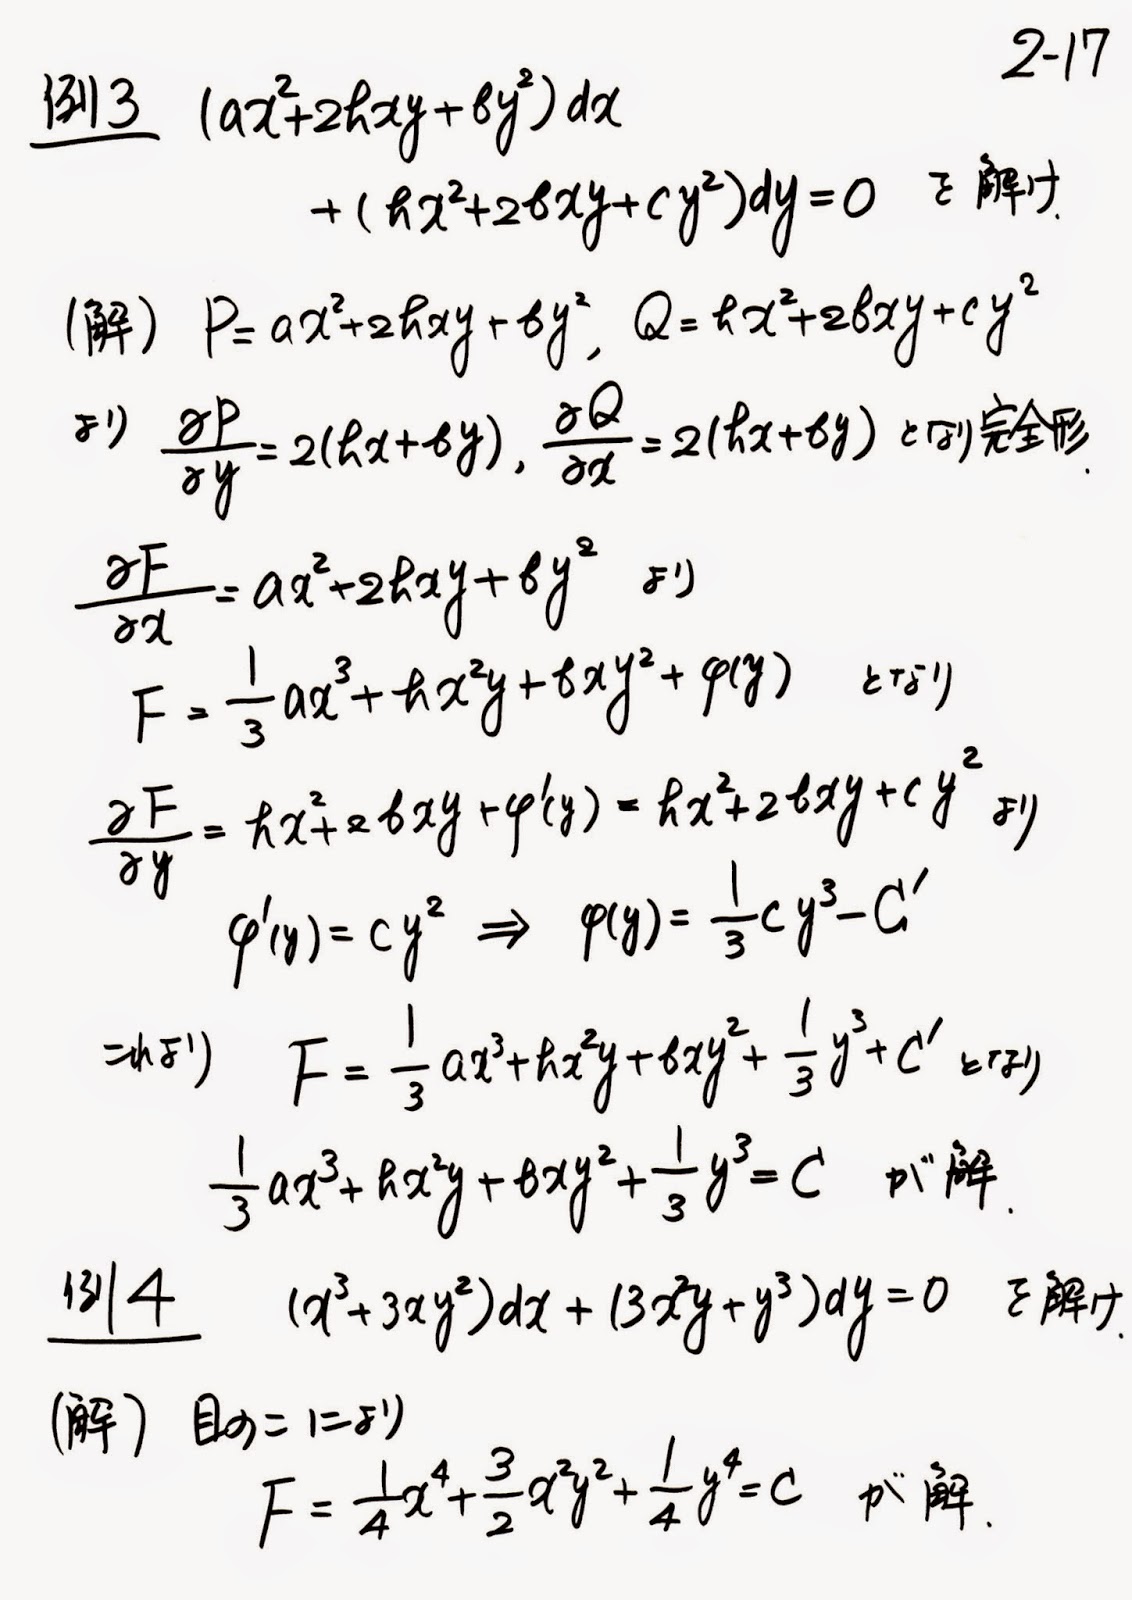 2-17
例3 (ax²+2hxy+by²)dx
+(hx²+2bxy+cy²)dy=0 を解け.
(解) P=ax²+2hxy+by², Q=hx²+2bxy+cy²
より ∂P/∂y=2(hx+by), ∂Q/∂x=2(hx+by) となり完全形.
∂F/∂x=ax²+2hxy+by² より
F=1/3ax³+hx²y+bxy²+φ(y) となり
∂F/∂y=hx²+2bxy+φ'(y)=hx²+2bxy+cy² より
φ'(y)=cy² ⇒ φ(y)=1/3cy³-C'
これより F=1/3ax³+hx²y+bxy²+1/3y³+C' となり
1/3ax³+hx²y+bxy²+1/3y³=C が解.
例4 (x³+3xy²)dx+(3x²y+y³)dy=0 を解け.
(解) 目のこにより
F=1/4x⁴+3/2x²y²+1/4y⁴=C が解.